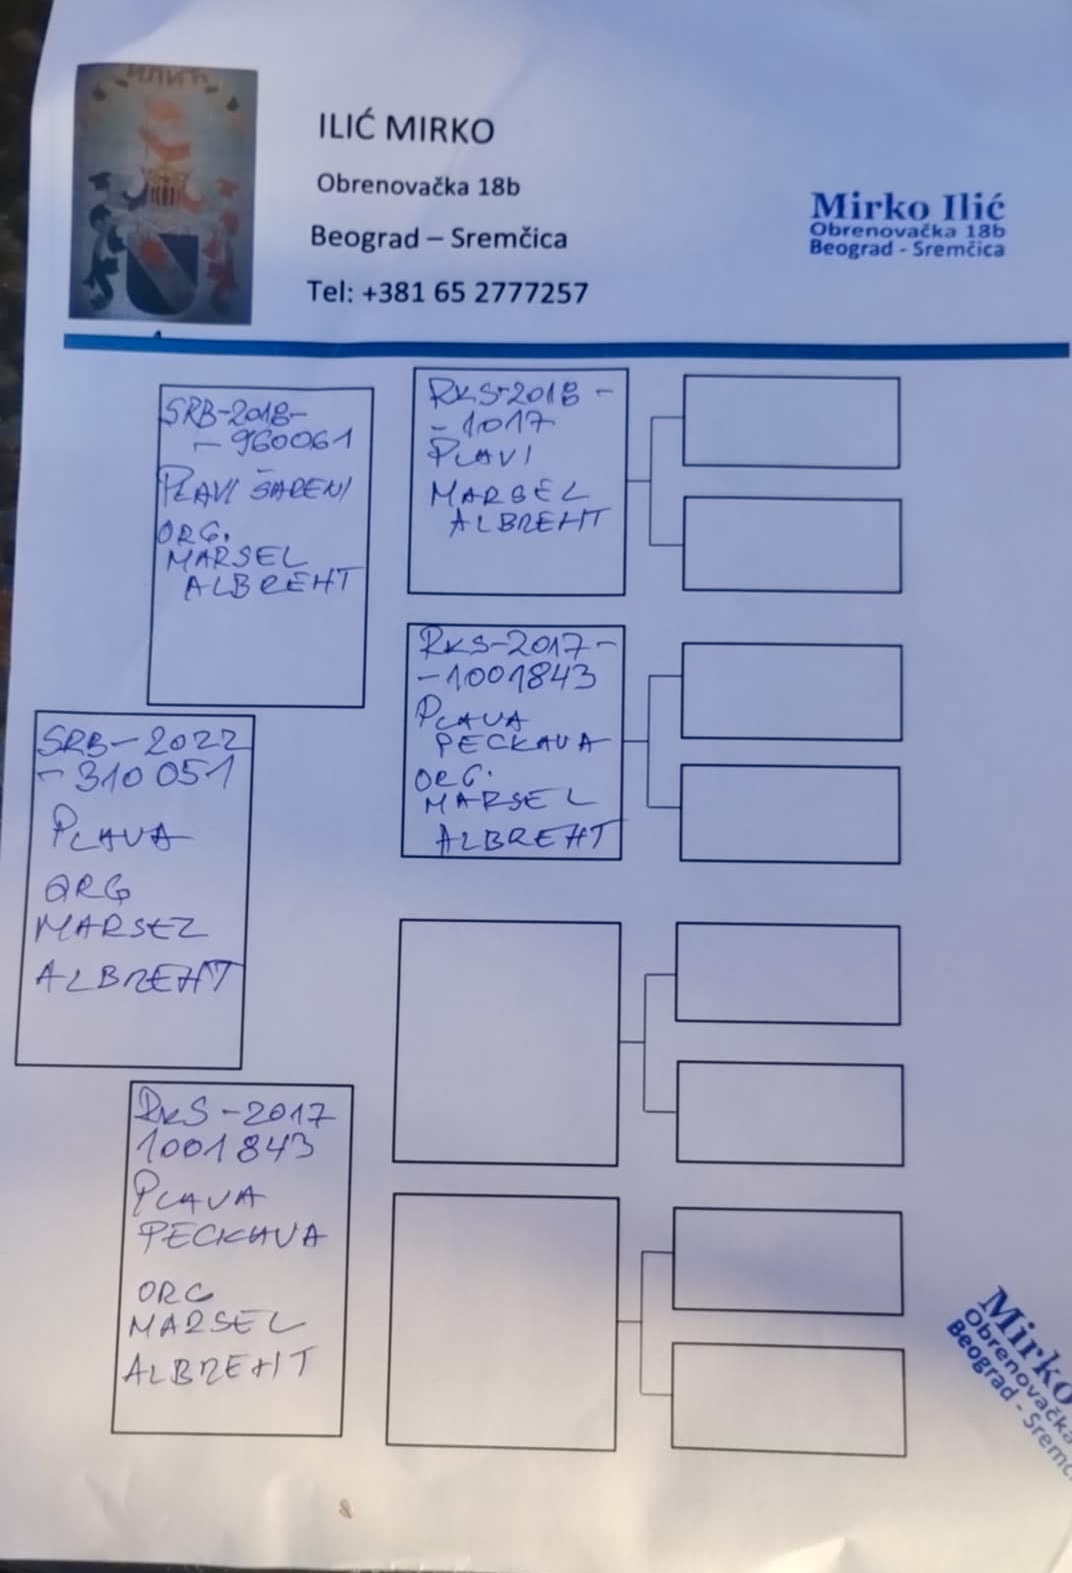 ИЛИЋ
ILIĆ MIRKO
Obrenovačka 18b
Beograd – Sremčica
Tel: +381 65 2777257
Mirko Ilić
Obrenovačka 18b
Beograd - Sremčica
SRB-2018-
- 960061
PLAVI ŠARENI
ORG.
MARSEL
ALBREHT
RKS-2018 -
- 1017
PLAVI
MARSEL
ALBREHT
RKS-2017-
-1001843
PLAVA
PECKAVA
ORG.
MARSEL
ALBREHT
SRB-2022
- 310 051
PLAVA
ORG
MARSEL
ALBREHT
RKS-2017
1001843
PLAVA
PECKAVA
ORG
MARSEL
ALBREHT
Mirko
Obrenovačka
Beograd - Sremč